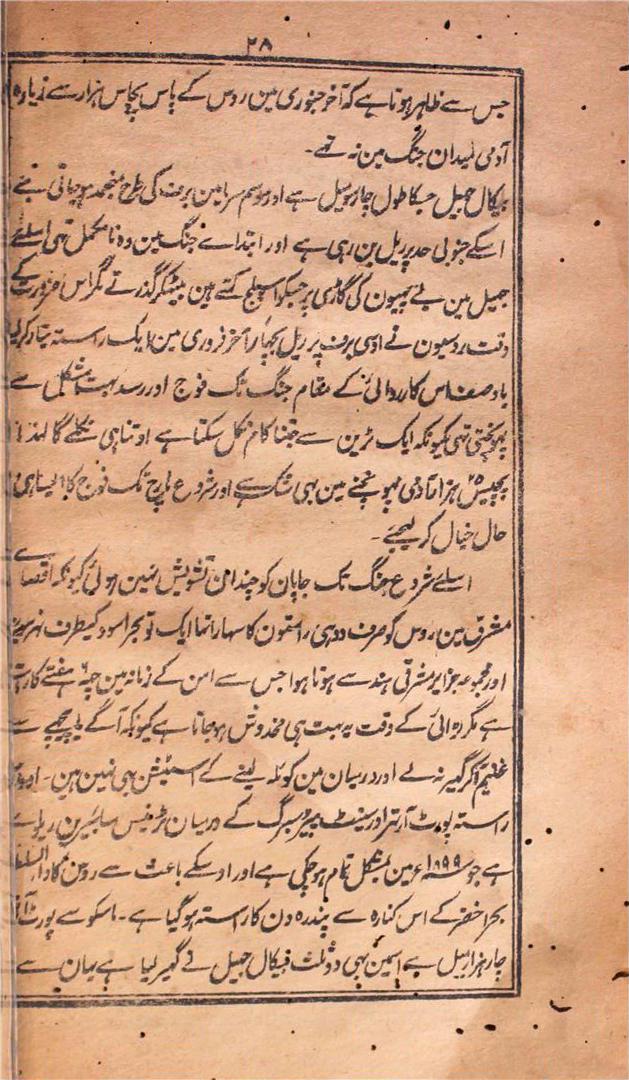 ۲۸
جس سے ظاہر ہوتا ہے کہ آخر جنوری مین روس کے پاس پچاس ہزار سے زیادہ
آدمی میدان جنگ مین نہ تھے۔
بیکال جھیل جسکا طول چار سو میل ہے اور موسم سرما مین برف کی طرح منجمد ہو جاتی ہے
اسکے جنوبی حد پر ریل بن رہی ہے اور ابتداے جنگ مین وہ نا مکمل تہی اسلئے
جھیل مین بے پہیون کی گاڑی پر جسکو اسلیج کہتے ہین بیٹھکر گذرتے مگر اس ضرورت کے
وقت روسیون نے اوسی برف پر ریل بچھا کر آخر فروری مین ایک راستہ تیار کر لیا
باوصف اس کارروائی کے مقام جنگ تک فوج اور رسد بہت مشکل سے
پہونچتی تہی کیونکہ ایک ٹرین سے جتنا کام نکل سکتا ہے اوتنا ہی نکلے گا لہذا
پچیس ۲۵ ہزار آدمی پہونچنے مین بہی شک ہے اور شروع مارچ تک فوج کا ایسا ہی
حال خیال کر لیجئے۔
اسلئے شروع جنگ تک جاپان کو چندان تشویش نہین ہوئی کیونکہ اقصاے
مشرق مین روس کو صرف دو ہی راستون کا سہارا تھا ایک تو بحر اسود کیطرف نہر سویز
اور مجموعہ جزایر مشرقی ہند سے ہوتا ہوا جس سے امن کے زمانہ مین چھ ۶ ہفتے کا راستہ
ہے مگر لڑائی کے وقت یہ بہت ہی مخدوش ہو جاتا ہے کیونکہ آگے یا پیچھے سے
غنیم آکر گھیر نہ لے اور درمیان مین کوئلہ لینے کے اسٹیشن بہی نہین ہین۔ اور دوسرا
راستہ پورٹ آرتھر اور سینٹ پیٹرسبرگ کے درمیان ٹرینس سائبیرین ریلوے
ہے جو ۱۸۹۹ء مین بمشکل تمام ہو چکی ہے اور اوسکے باعث سے روس کا دار السلطنت
بحر اخضر کے اس کنارہ سے پندرہ دن کا راستہ ہو گیا ہے۔ ماسکو سے پورٹ آرتھر
چار ہزار میل ہے اسمین بہی دو ثلث فیکال جھیل نے گھیر لیا ہے یہان سے